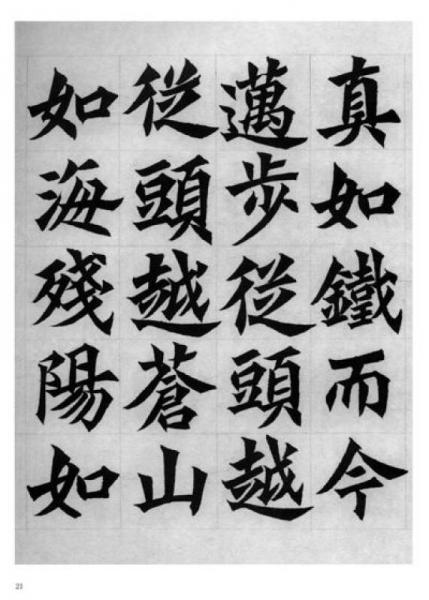 真如鐵而今
邁步從頭越
從頭越蒼山
如海殘陽如
21